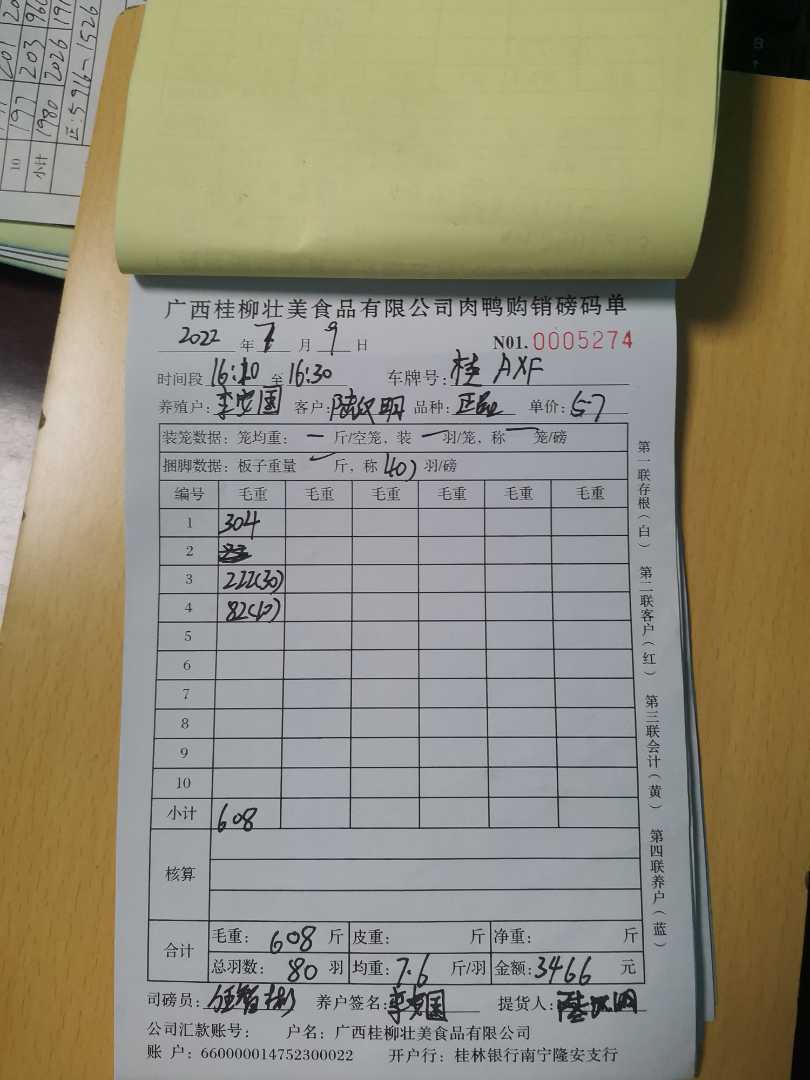 197 203 196
1980 2026 191
正:5916-1526
10
小计
广西桂柳壮美食品有限公司肉鸭购销磅码单
2022 年 7 月 9 日 N01.0005274
时间段 16:20 至 16:30 车牌号: 桂 AXF
养殖户: 李安国 客户: 陆汉明 品种: 正品 单价: 5.7
装笼数据: 笼均重: 一 斤/空笼, 装 一 羽/笼, 称 一 笼/磅
捆脚数据: 板子重量 斤, 称 40 羽/磅
编号 毛重 毛重 毛重 毛重 毛重 毛重
1 304
2
3 222(30)
4 82(10)
5
6
7
8
9
10
小计 608
核算
合计 毛重: 608 斤 皮重: 斤 净重: 斤
总羽数: 80 羽 均重: 7.6 斤/羽 金额: 3466 元
司磅员: 养户签名: 李安国 提货人: 陆汉明
公司汇款账号: 户名: 广西桂柳壮美食品有限公司
账 户: 660000014752300022 开户行: 桂林银行南宁隆安支行
第一联存根(白) 第二联客户(红) 第三联会计(黄) 第四联养户(蓝)